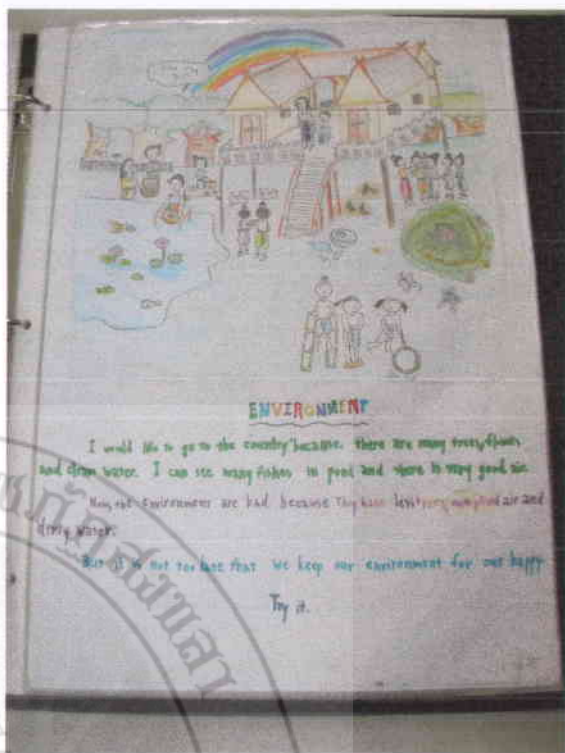 ENVIRONMENT
I would like to go to the country because. there are many trees, flowers
and clean water. I can see many fishes in pond and there is very good air
Now, the environment are bad because They have air and
dirty water.
But it is not too late that we keep our environment for our happy
Try it.